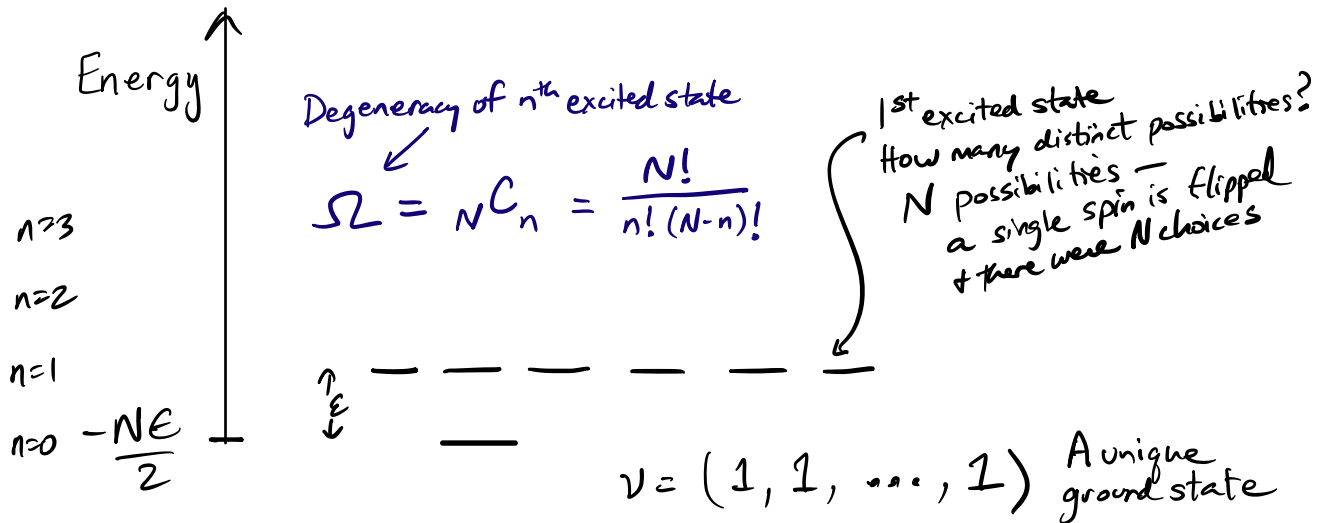 Energy
Degeneracy of nth excited state
Ω = NCn = N! / n! (N-n)!
1st excited state
How many distinct possibilities?
N possibilities —
a single spin is flipped
+ there were N choices
n=3
n=2
n=1
ε
n=0 -Nϵ/2
ν = (1, 1, ..., 1)
A unique
ground state